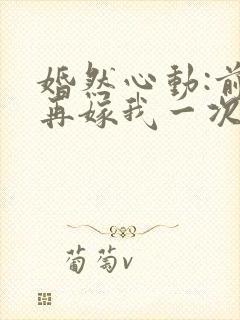 婚然心动:前
再嫁我一次
葡萄v